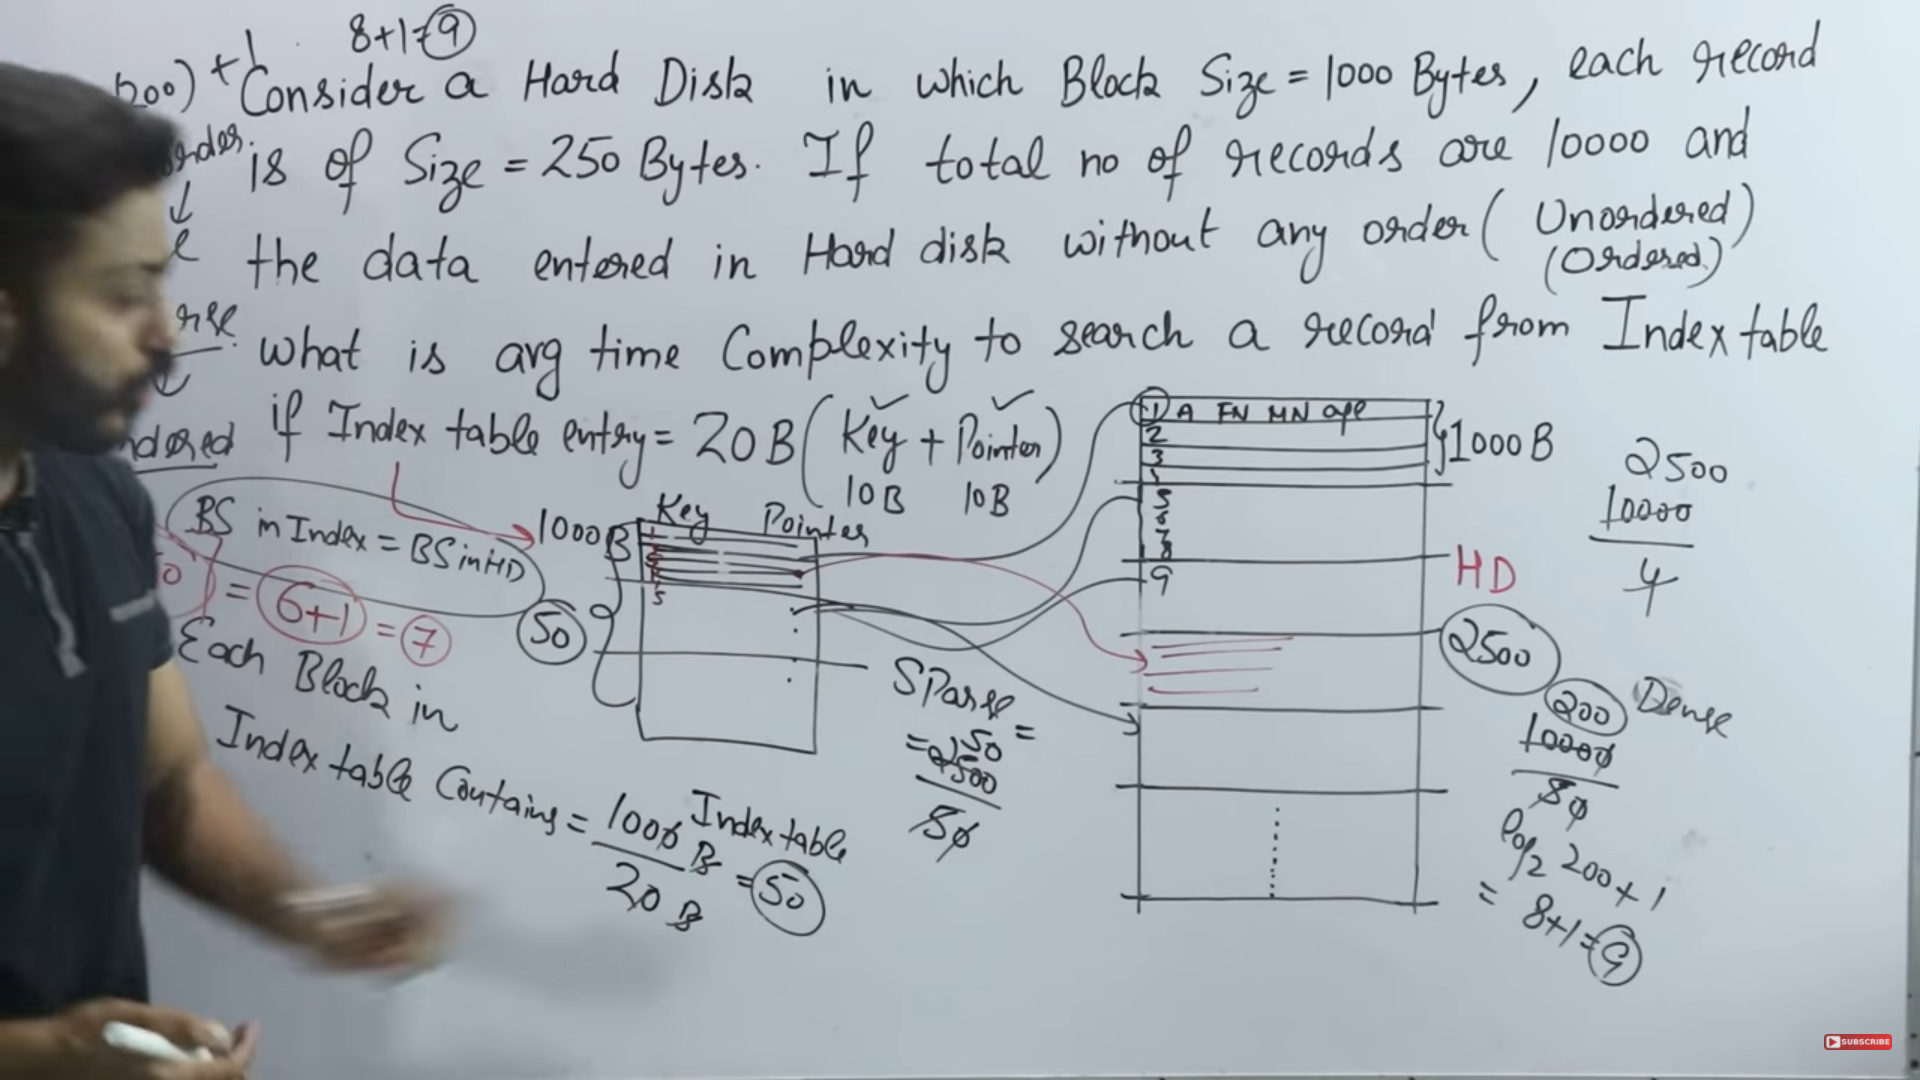 8+1=9
200) +1
Consider a Hard Disk in which Block Size = 1000 Bytes, each record
is of Size = 250 Bytes. If total no of records are 10000 and
the data entered in Hard disk without any order ( Unordered )
(Ordered)
what is avg time Complexity to search a record from Index table
if Index table entry = 20B ( Key + Pointer )
10B 10B
BS in Index = BS in HD
= 6+1 = 7
Each Block in
Index table Contains = 1000 B / 20 B = 50
1000 B
Key Pointer
50
Index table
SParse =
= 50
2500
50
1 A FN MN
2
3
4
5
6
7
8
9
1000 B
HD
2500
10000
4
2500
200 Dense
10000
50
log2 200 + 1
= 8+1 = 9
SUBSCRIBE